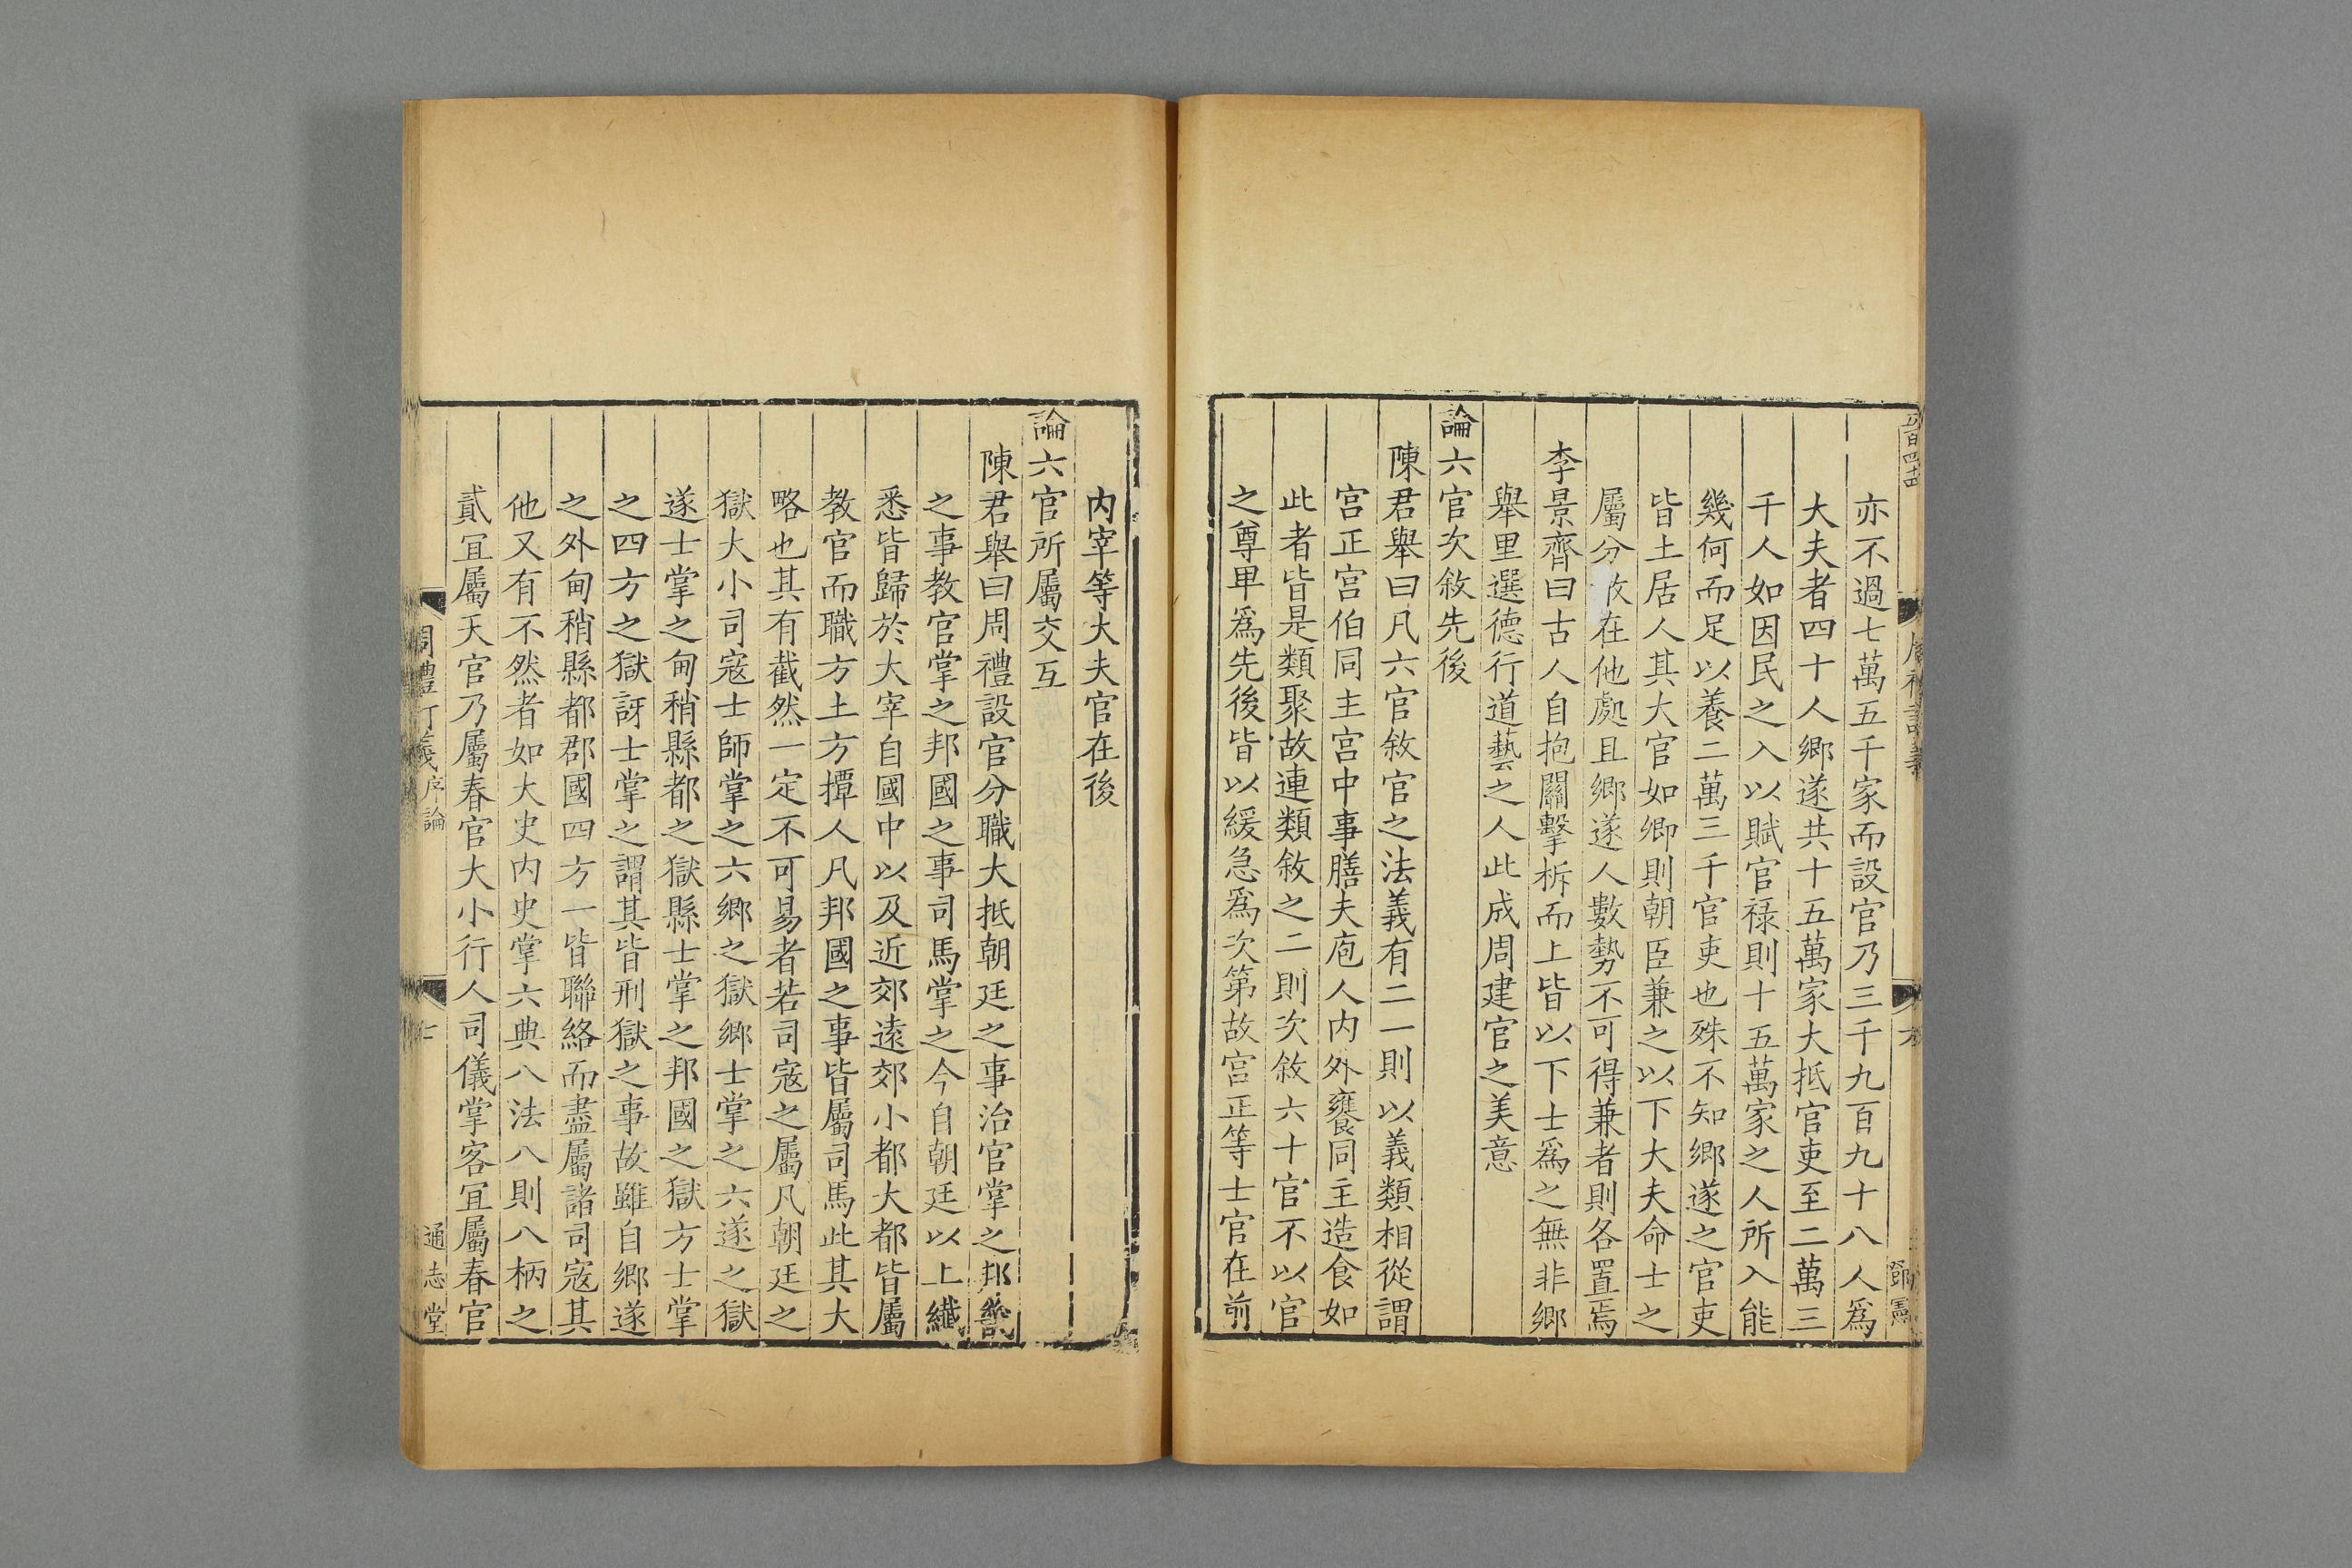 亦不過七萬五千家而設官乃三千九百九十八人爲
大夫者四十人鄉遂共十五萬家大抵官吏至二萬三
千人如因民之入以賦官祿則十五萬家之人所入能
幾何而足以養二萬三千官吏也殊不知鄉遂之官吏
皆土居人其大官如卿則朝臣兼之以下大夫命士之
屬分在他處且鄉遂人數勢不可得兼者則各置焉
李景齊曰古人自抱關擊柝而上皆以下士爲之無非鄉
舉里選德行道藝之人此成周建官之美意
論六官次敘先後
陳君舉曰凡六官敘官之法義有二一則以義類相從謂
宮正宮伯同主宮中事膳夫庖人內外饔同主造食如
此者皆是類聚故連類敘之二則次敘六十官不以官
之尊卑爲先後皆以緩急爲次第故宮正等士官在前
鄧憲
內宰等大夫官在後
論六官所屬交互
陳君舉曰周禮設官分職大抵朝廷之事治官掌之邦畿
之事教官掌之邦國之事司馬掌之今自朝廷以上纎
悉皆歸於大宰自國中以及近郊遠郊小都大都皆屬
教官而職方土方撢人凡邦國之事皆屬司馬此其大
略也其有截然一定不可易者若司寇之屬凡朝廷之
獄大小司寇士師掌之六鄉之獄鄉士掌之六遂之獄
遂士掌之甸稍縣都之獄縣士掌之邦國之獄方士掌
之四方之獄訝士掌之謂其皆刑獄之事故雖自鄉遂
之外甸稍縣都郡國四方一皆聯絡而盡屬諸司寇其
他又有不然者如大史內史掌六典八法八則八柄之
貳宜屬天官乃屬春官大小行人司儀掌客宜屬春官
周禮訂義序論
七
通志堂